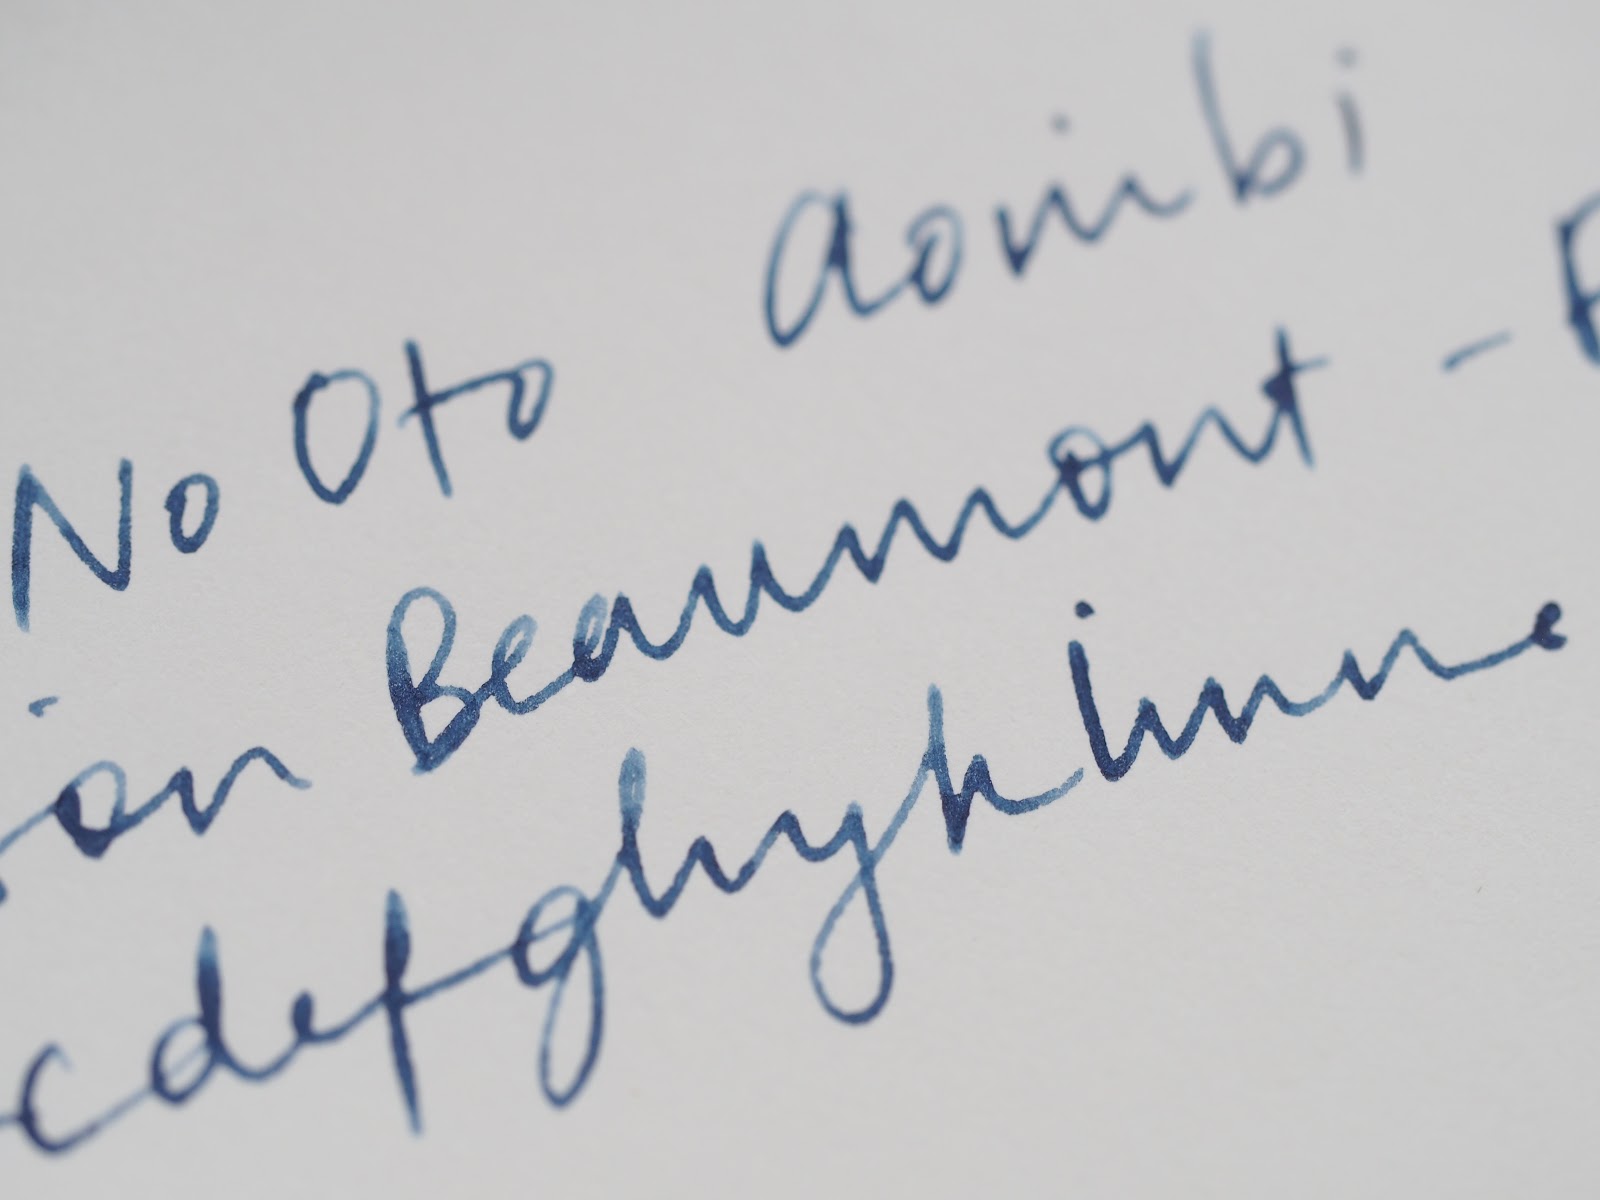 No Oto Aonibi
ion Beaumont - F
cdefghijklmn